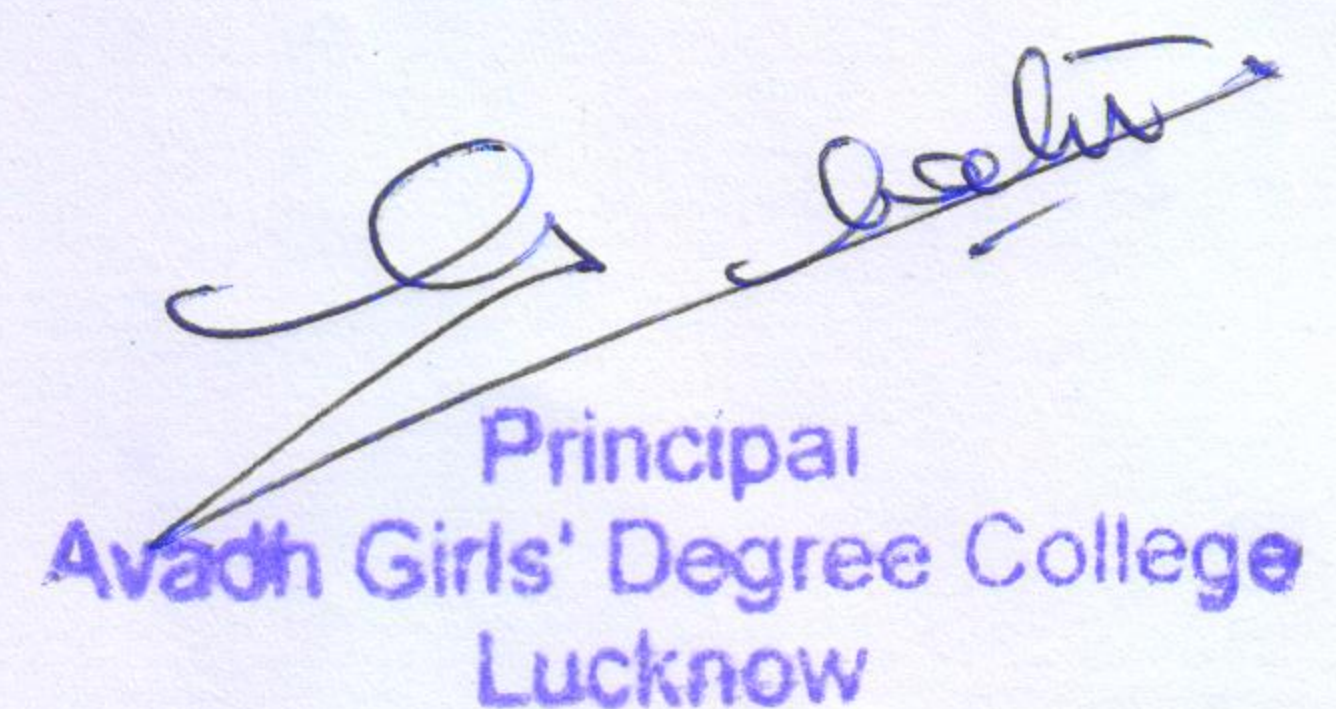 Principal
Avadh Girls' Degree College
Lucknow